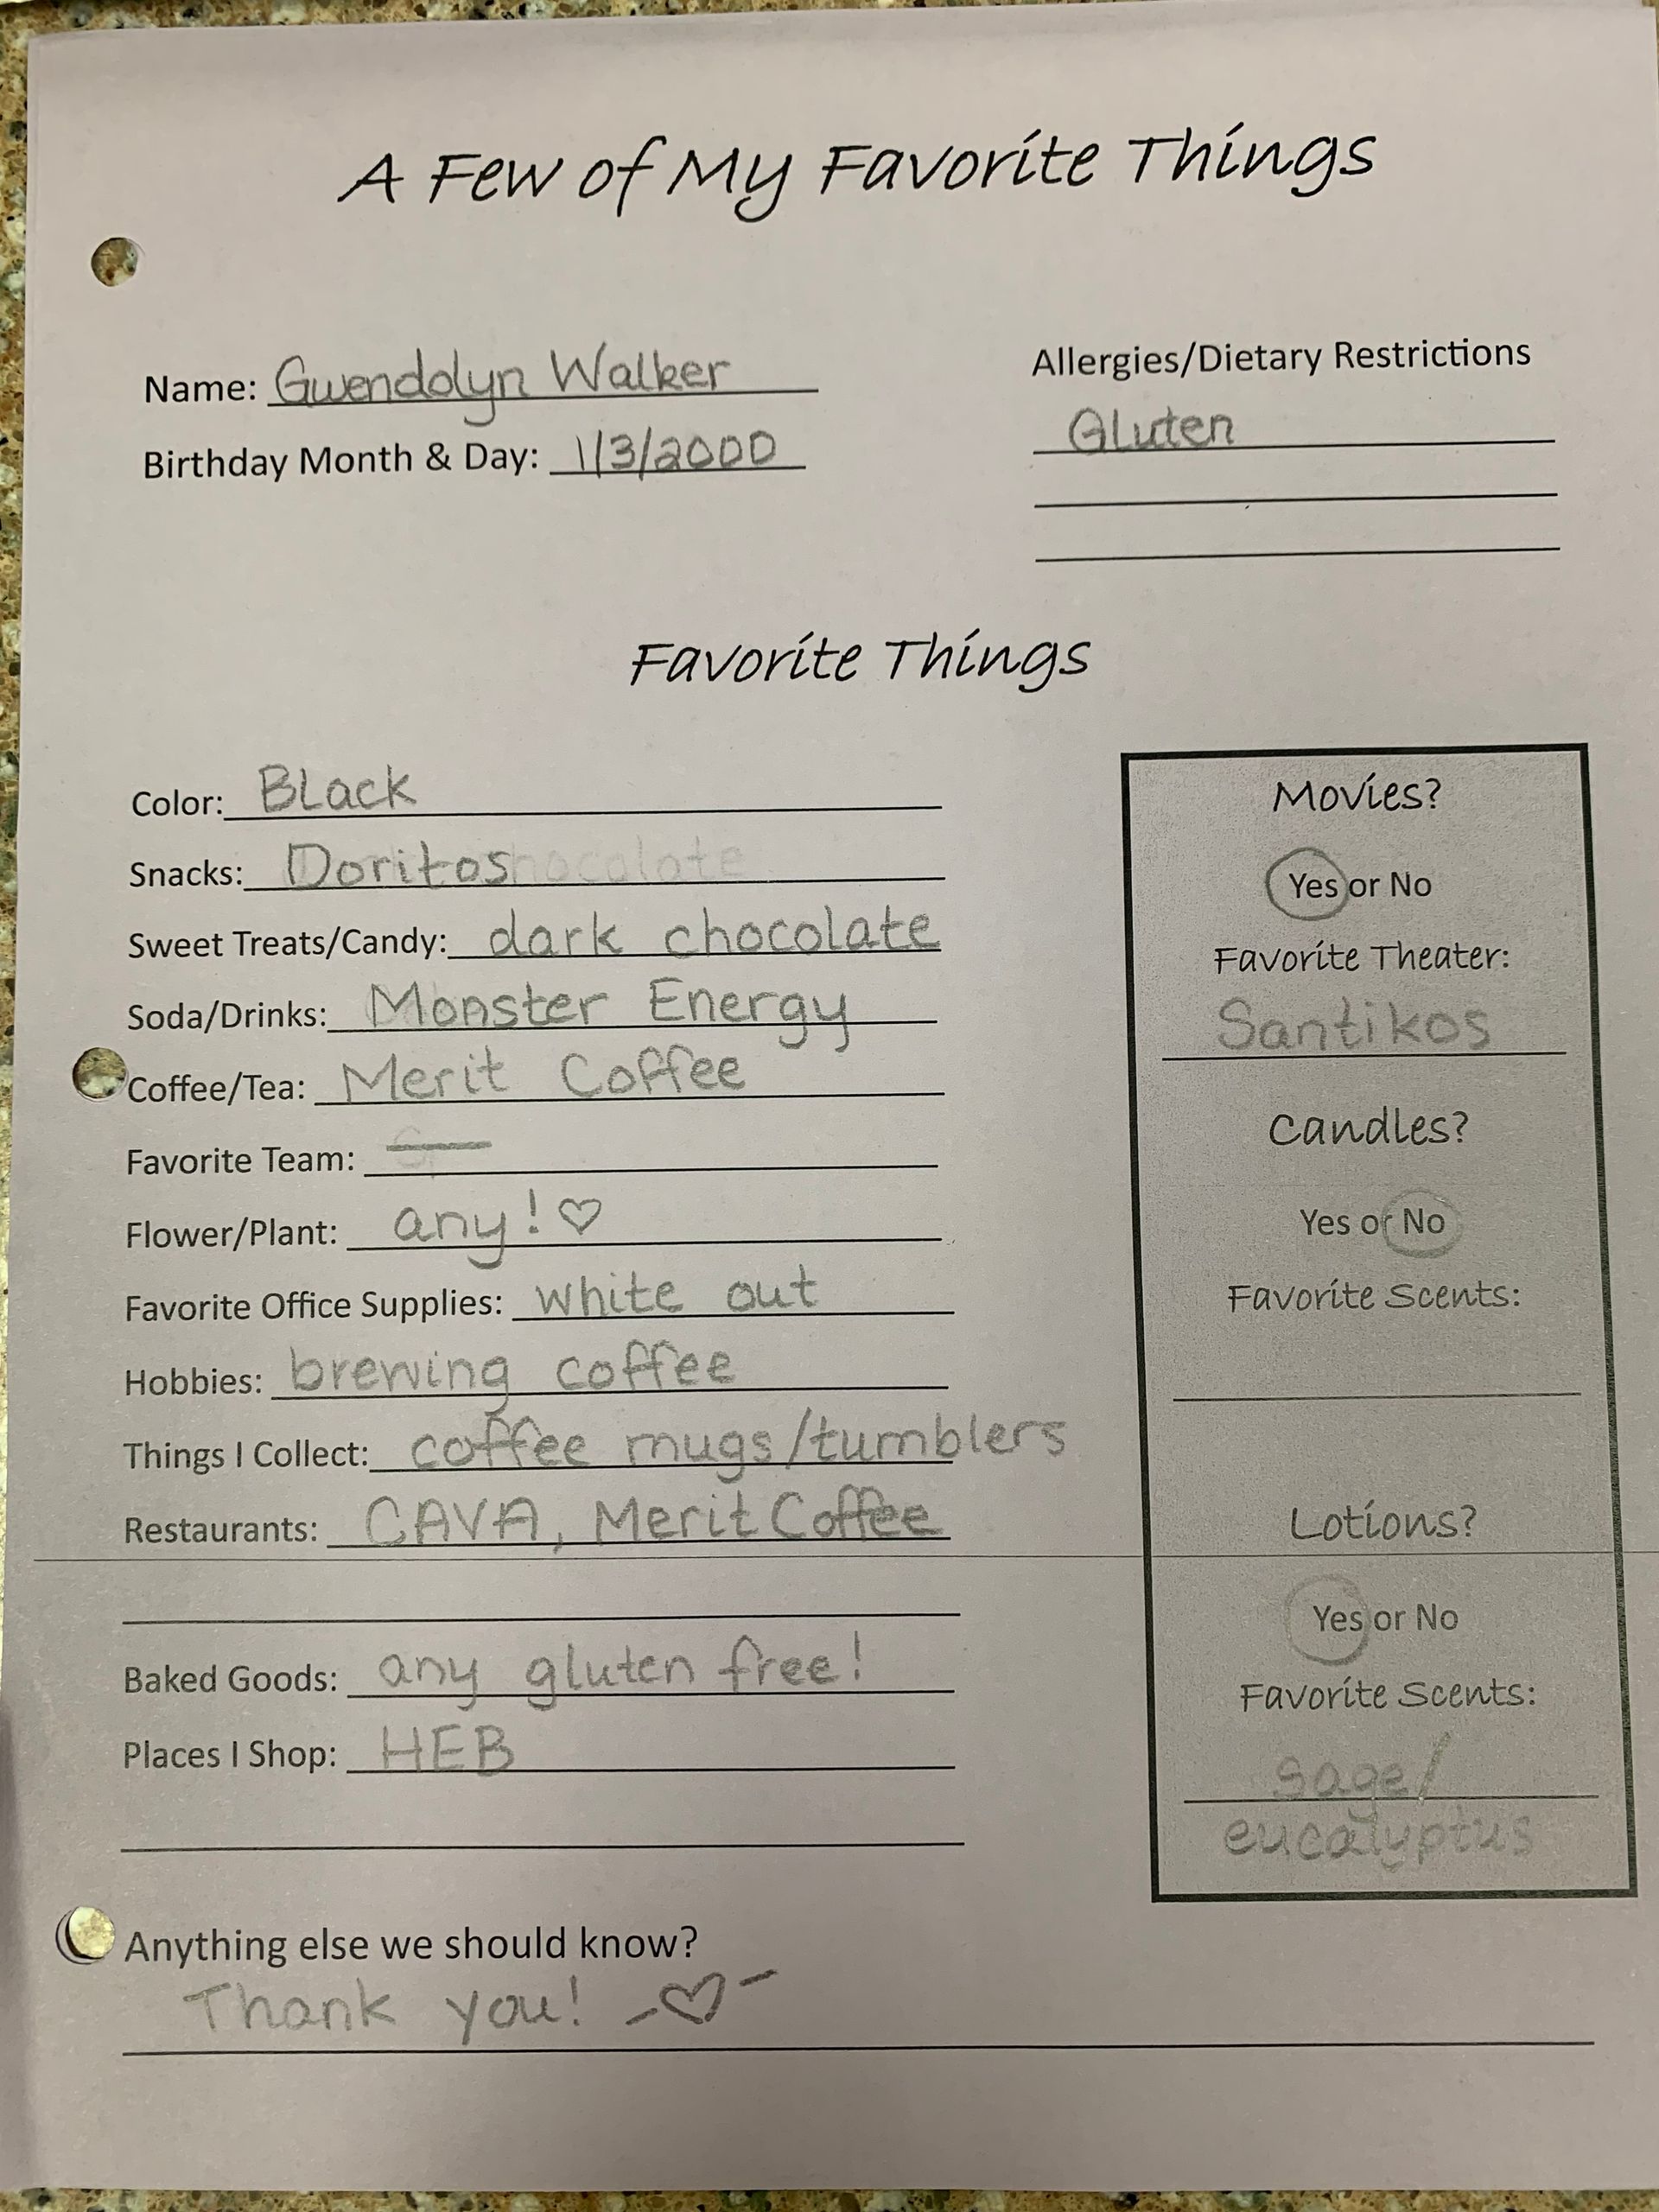 A Few of My Favorite Things
Name: Gwendolyn Walker
Birthday Month & Day: 1/3/2000
Allergies/Dietary Restrictions
Gluten
Favorite Things
Color: Black
Snacks: Doritos
Sweet Treats/Candy: dark chocolate
Soda/Drinks: Monster Energy
Coffee/Tea: Merit Coffee
Favorite Team:
Flower/Plant: any! ♡
Favorite Office Supplies: white out
Hobbies: brewing coffee
Things I Collect: coffee mugs/tumblers
Restaurants: CAVA, Merit Coffee
Baked Goods: any gluten free!
Places I Shop: HEB
Movies?
Yes or No
Favorite Theater:
Santikos
Candles?
Yes or No
Favorite Scents:
Lotions?
Yes or No
Favorite Scents:
sage/
eucalyptus
Anything else we should know?
Thank you! -♡-